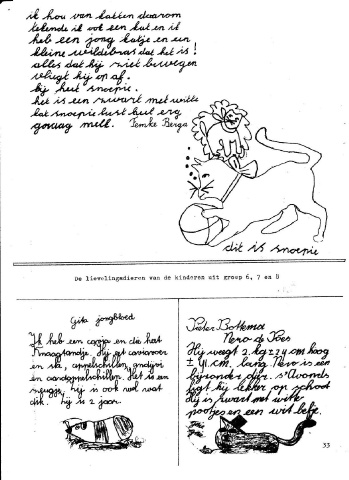 ik hou van katten daarom
tekende ik ook een kat en ik
heb een jong katje en een
kleine wildebras dat het is!
alles dat hij ziet bewegen
vliegt hij op af.
hij heet snoepie.
het is een zwart met witte
kat snoepie lust heel erg
graag melk. Femke Berga
dit is snoepie
De lievelingsdieren van de kinderen uit groep 6, 7 en 8
Gita jongbloed
Ik heb een cavia en die hat
Knaagtandje. Hij eet caviavoer
en sla, appelschillen, andijvi
en aardappelschillen. Het is een
hij is ook wel wat
dik. hij is 2 jaar.
Pieter Bottema
Nero de Poes
Hij weegt 2 kg ± 24 cm hoog
± 41 cm. lang. Nero is een
bijzonder dier. s'Avonds
ligt hij lekker op schoot
Hij is zwart met witte
pootjes en een wit befje.
33